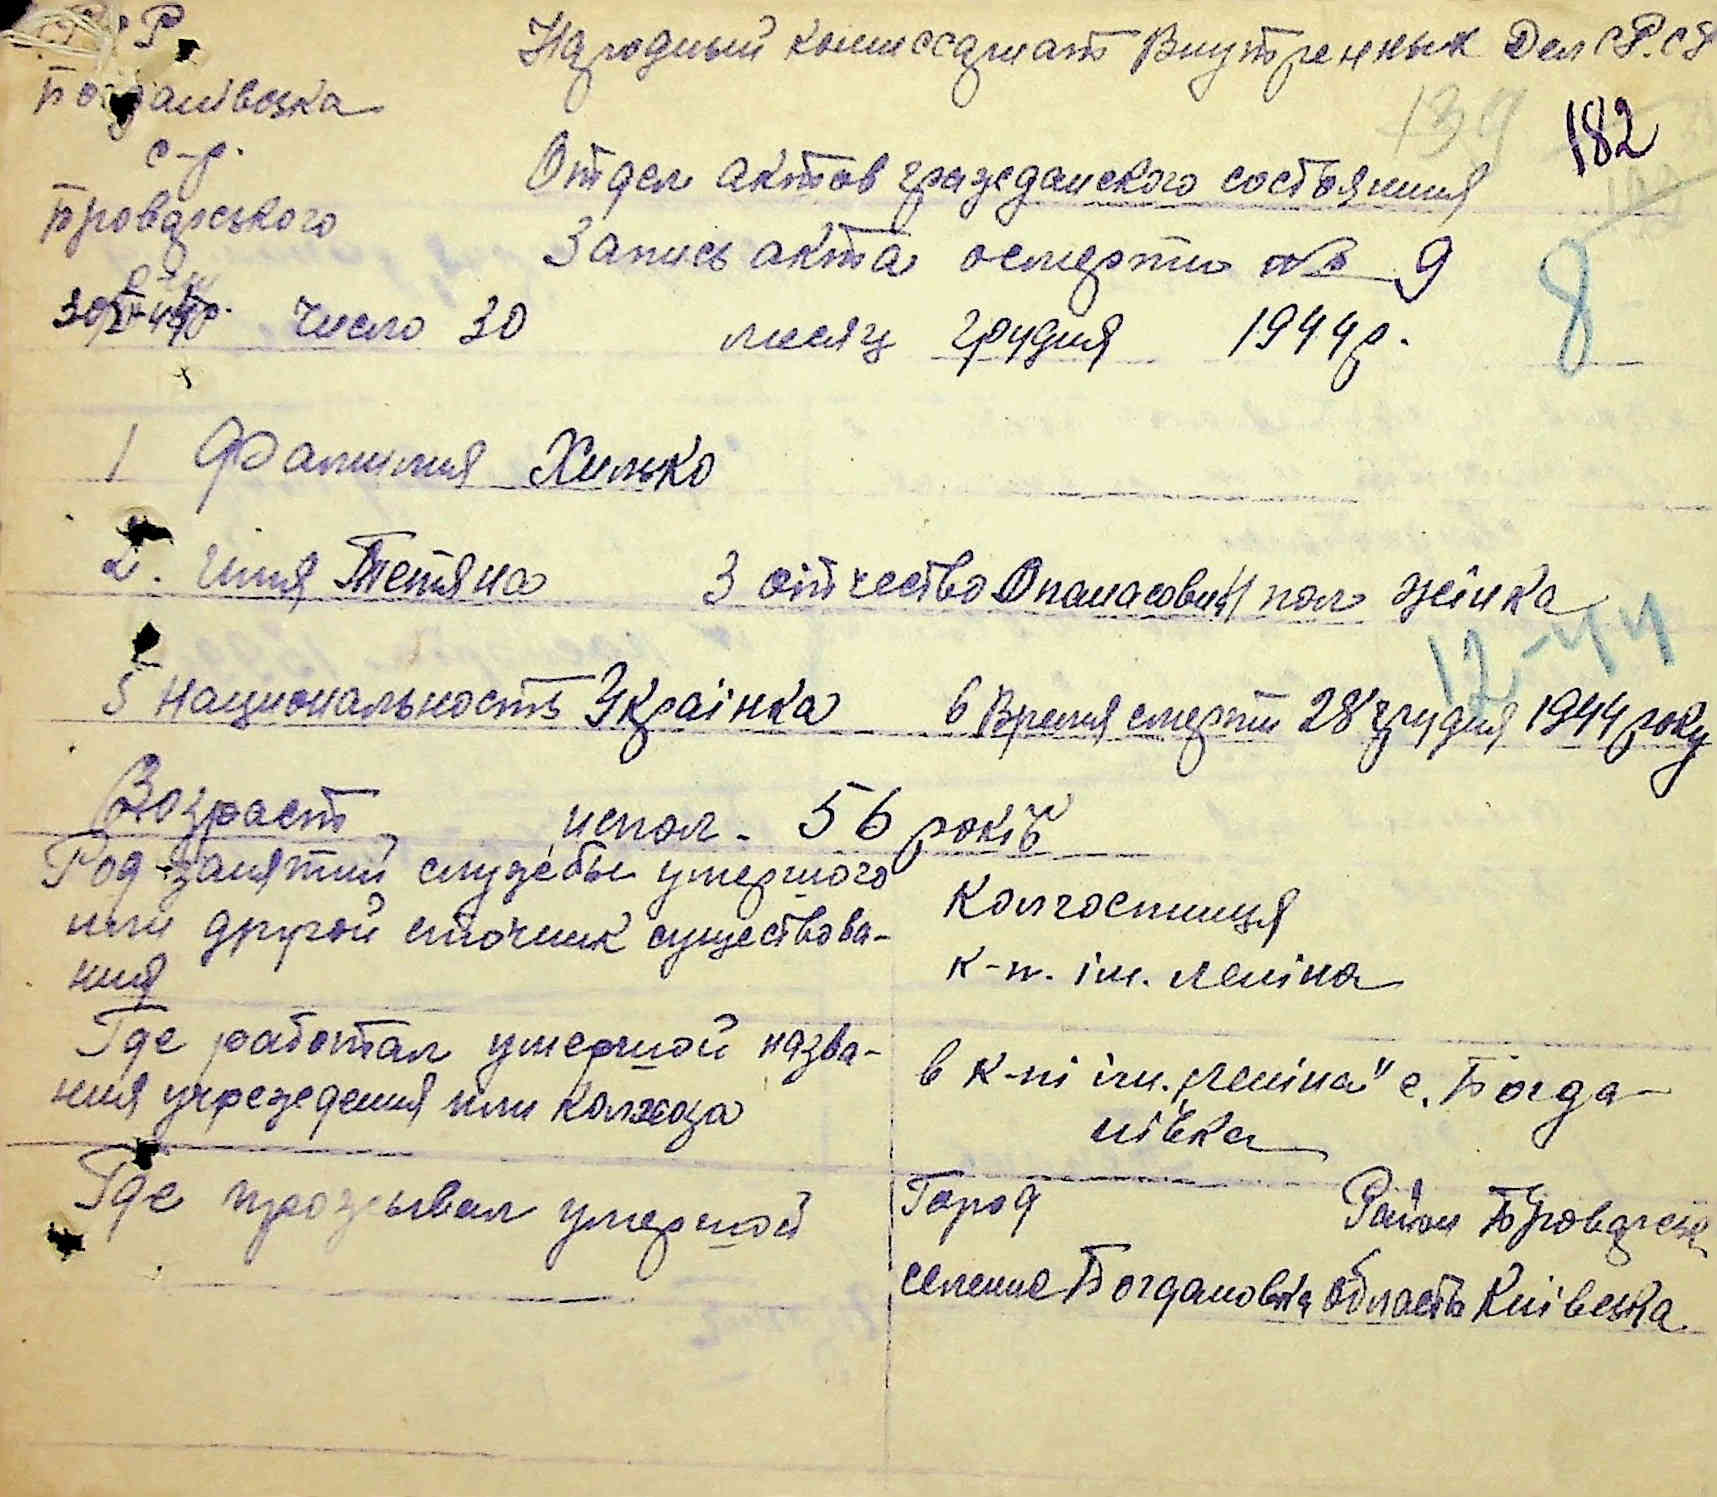 Народный комиссариат Внутренных Дел
Богданівська
с-р.
Броварського
р-ну
139
182
Отдел актов гражеданского состояния
Запись акта осмерти № 9
8
число 30 месяц грудня 1944 р.
1 Фамилия Хилько
2. Имя Тетяна 3 отчество Опанасовн 4 пол жінка
12-44
5 Национальность Українка 6 Время смерти 28 грудня 1944 року
Возраст испол - 56 років
Род занятий службы умершого
или другой сточник существова-
ния
Колгоспниця
к-п. ім. Леніна
Где работал умершой назва-
ния учреждения или колхоза
в к-пі ім. „Леніна" с. Богда-
нівка
Где прозывал умершой
Город Район Броварськ
селение Богдановка область Київська